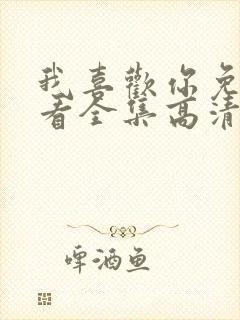 我喜歡你免
看全集高清
啤酒鱼